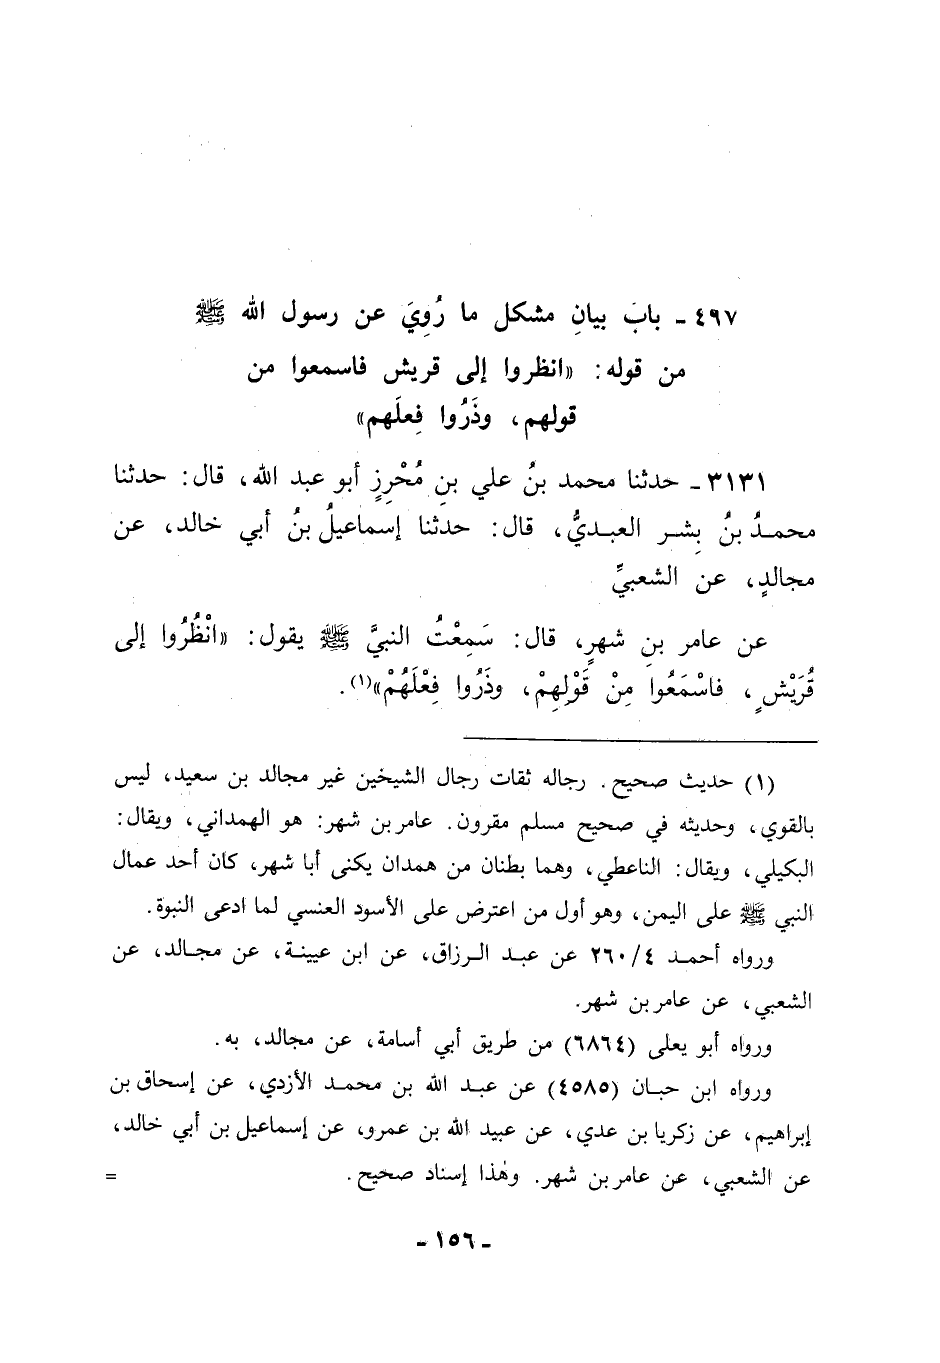 ٤٩٧ ـ بابُ بيانِ مشكل ما رُوِيَ عن رسول الله ﷺ
من قوله: «انظروا إلى قريش فاسمعوا من
قولهم، وذَرُوا فِعلَهم»
٣١٣١ ـ حدثنا محمد بنُ علي بنِ مُحْرِزٍ أبو عبد الله، قال: حدثنا
محمدُ بنُ بِشر العبديُّ، قال: حدثنا إسماعيلُ بنُ أبي خالد، عن
مجالدٍ، عن الشعبيِّ
عن عامر بنِ شهرٍ، قال: سَمِعْتُ النبيَّ ﷺ يقول: «انْظُرُوا إلى
قُرَيْشٍ، فاسْمَعُوا مِنْ قَوْلِهِمْ، وذَرُوا فِعْلَهُمْ»(١).
(١) حديث صحيح. رجاله ثقات رجال الشيخين غير مجالد بن سعيد، ليس
بالقوي، وحديثه في صحيح مسلم مقرون. عامر بن شهر: هو الهمداني، ويقال:
البكيلي، ويقال: الناعطي، وهما بطنان من همدان يكنى أبا شهر، كان أحد عمال
النبي ﷺ على اليمن، وهو أول من اعترض على الأسود العنسي لما ادعى النبوة.
ورواه أحمد ٢٦٠/٤ عن عبد الرزاق، عن ابن عيينة، عن مجالد، عن
الشعبي، عن عامر بن شهر.
ورواه أبو يعلى (٦٨٦٤) من طريق أبي أسامة، عن مجالد، به.
ورواه ابن حبان (٤٥٨٥) عن عبد الله بن محمد الأزدي، عن إسحاق بن
إبراهيم، عن زكريا بن عدي، عن عبيد الله بن عمرو، عن إسماعيل بن أبي خالد،
عن الشعبي، عن عامر بن شهر. وهٰذا إسناد صحيح. =
ـ ١٥٦ ـ